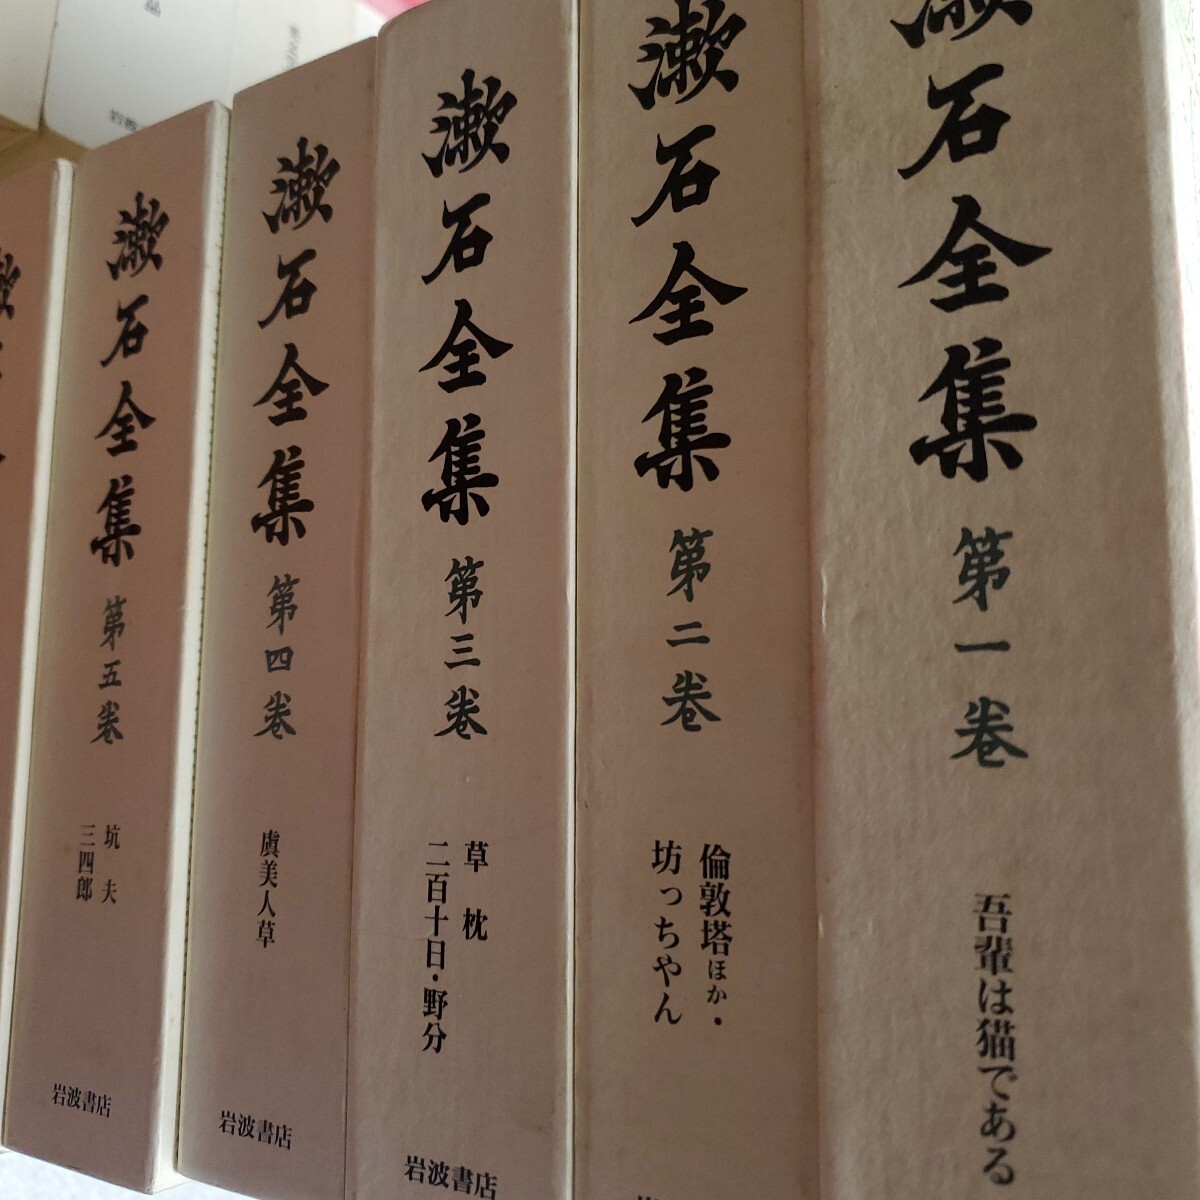 漱石全集 第一巻
吾輩は猫である
漱石全集 第二巻
倫敦塔ほか・
坊っちやん
漱石全集 第三巻
草枕
二百十日・野分
岩波書店
漱石全集 第四巻
虞美人草
岩波書店
漱石全集 第五巻
坑夫
三四郎
岩波書店